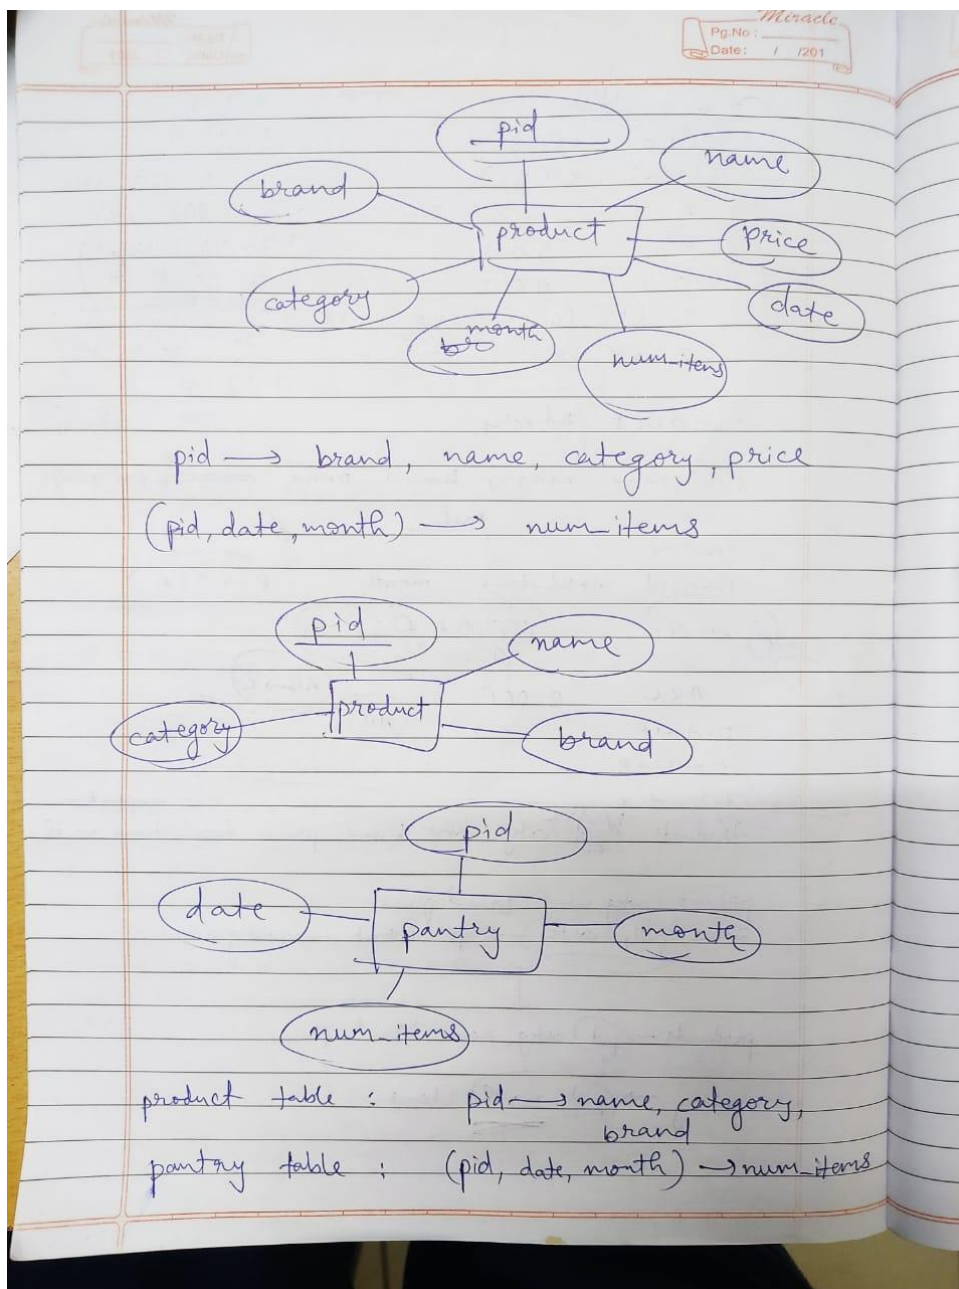 Miracle
Pg.No :
Date: / /201
pid
name
brand
product
price
category
date
month
num_items
pid → brand, name, category, price
(pid, date, month) → num_items
pid
name
product
category
brand
pid
date
pantry
month
num_items
product table : pid → name, category,
brand
pantry table : (pid, date, month) → num_items